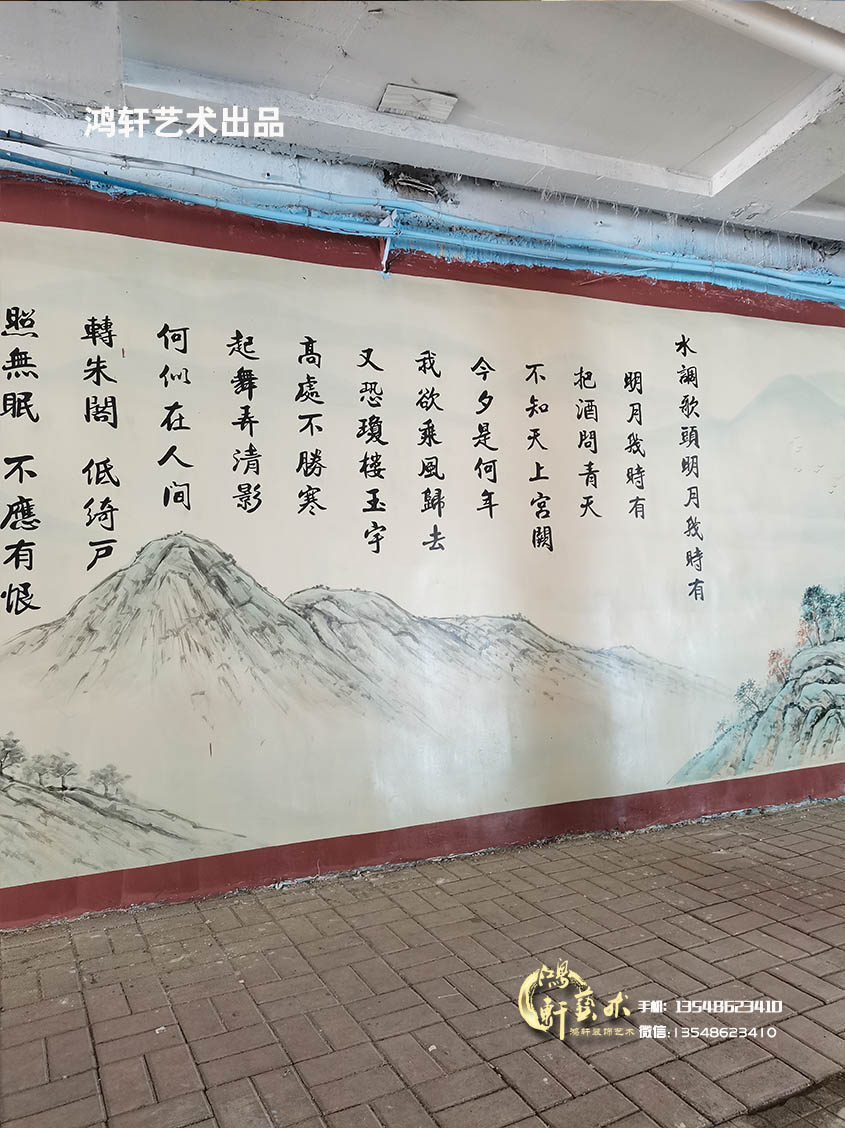 鸿轩艺术出品
水調歌頭明月幾時有
明月幾時有
把酒問青天
不知天上宮闕
今夕是何年
我欲乘風歸去
又恐瓊樓玉宇
高處不勝寒
起舞弄清影
何似在人间
轉朱閣 低綺戶
照無眠 不應有恨
鴻軒藝术
鸿轩装饰艺术
手机：13548623410
微信:13548623410